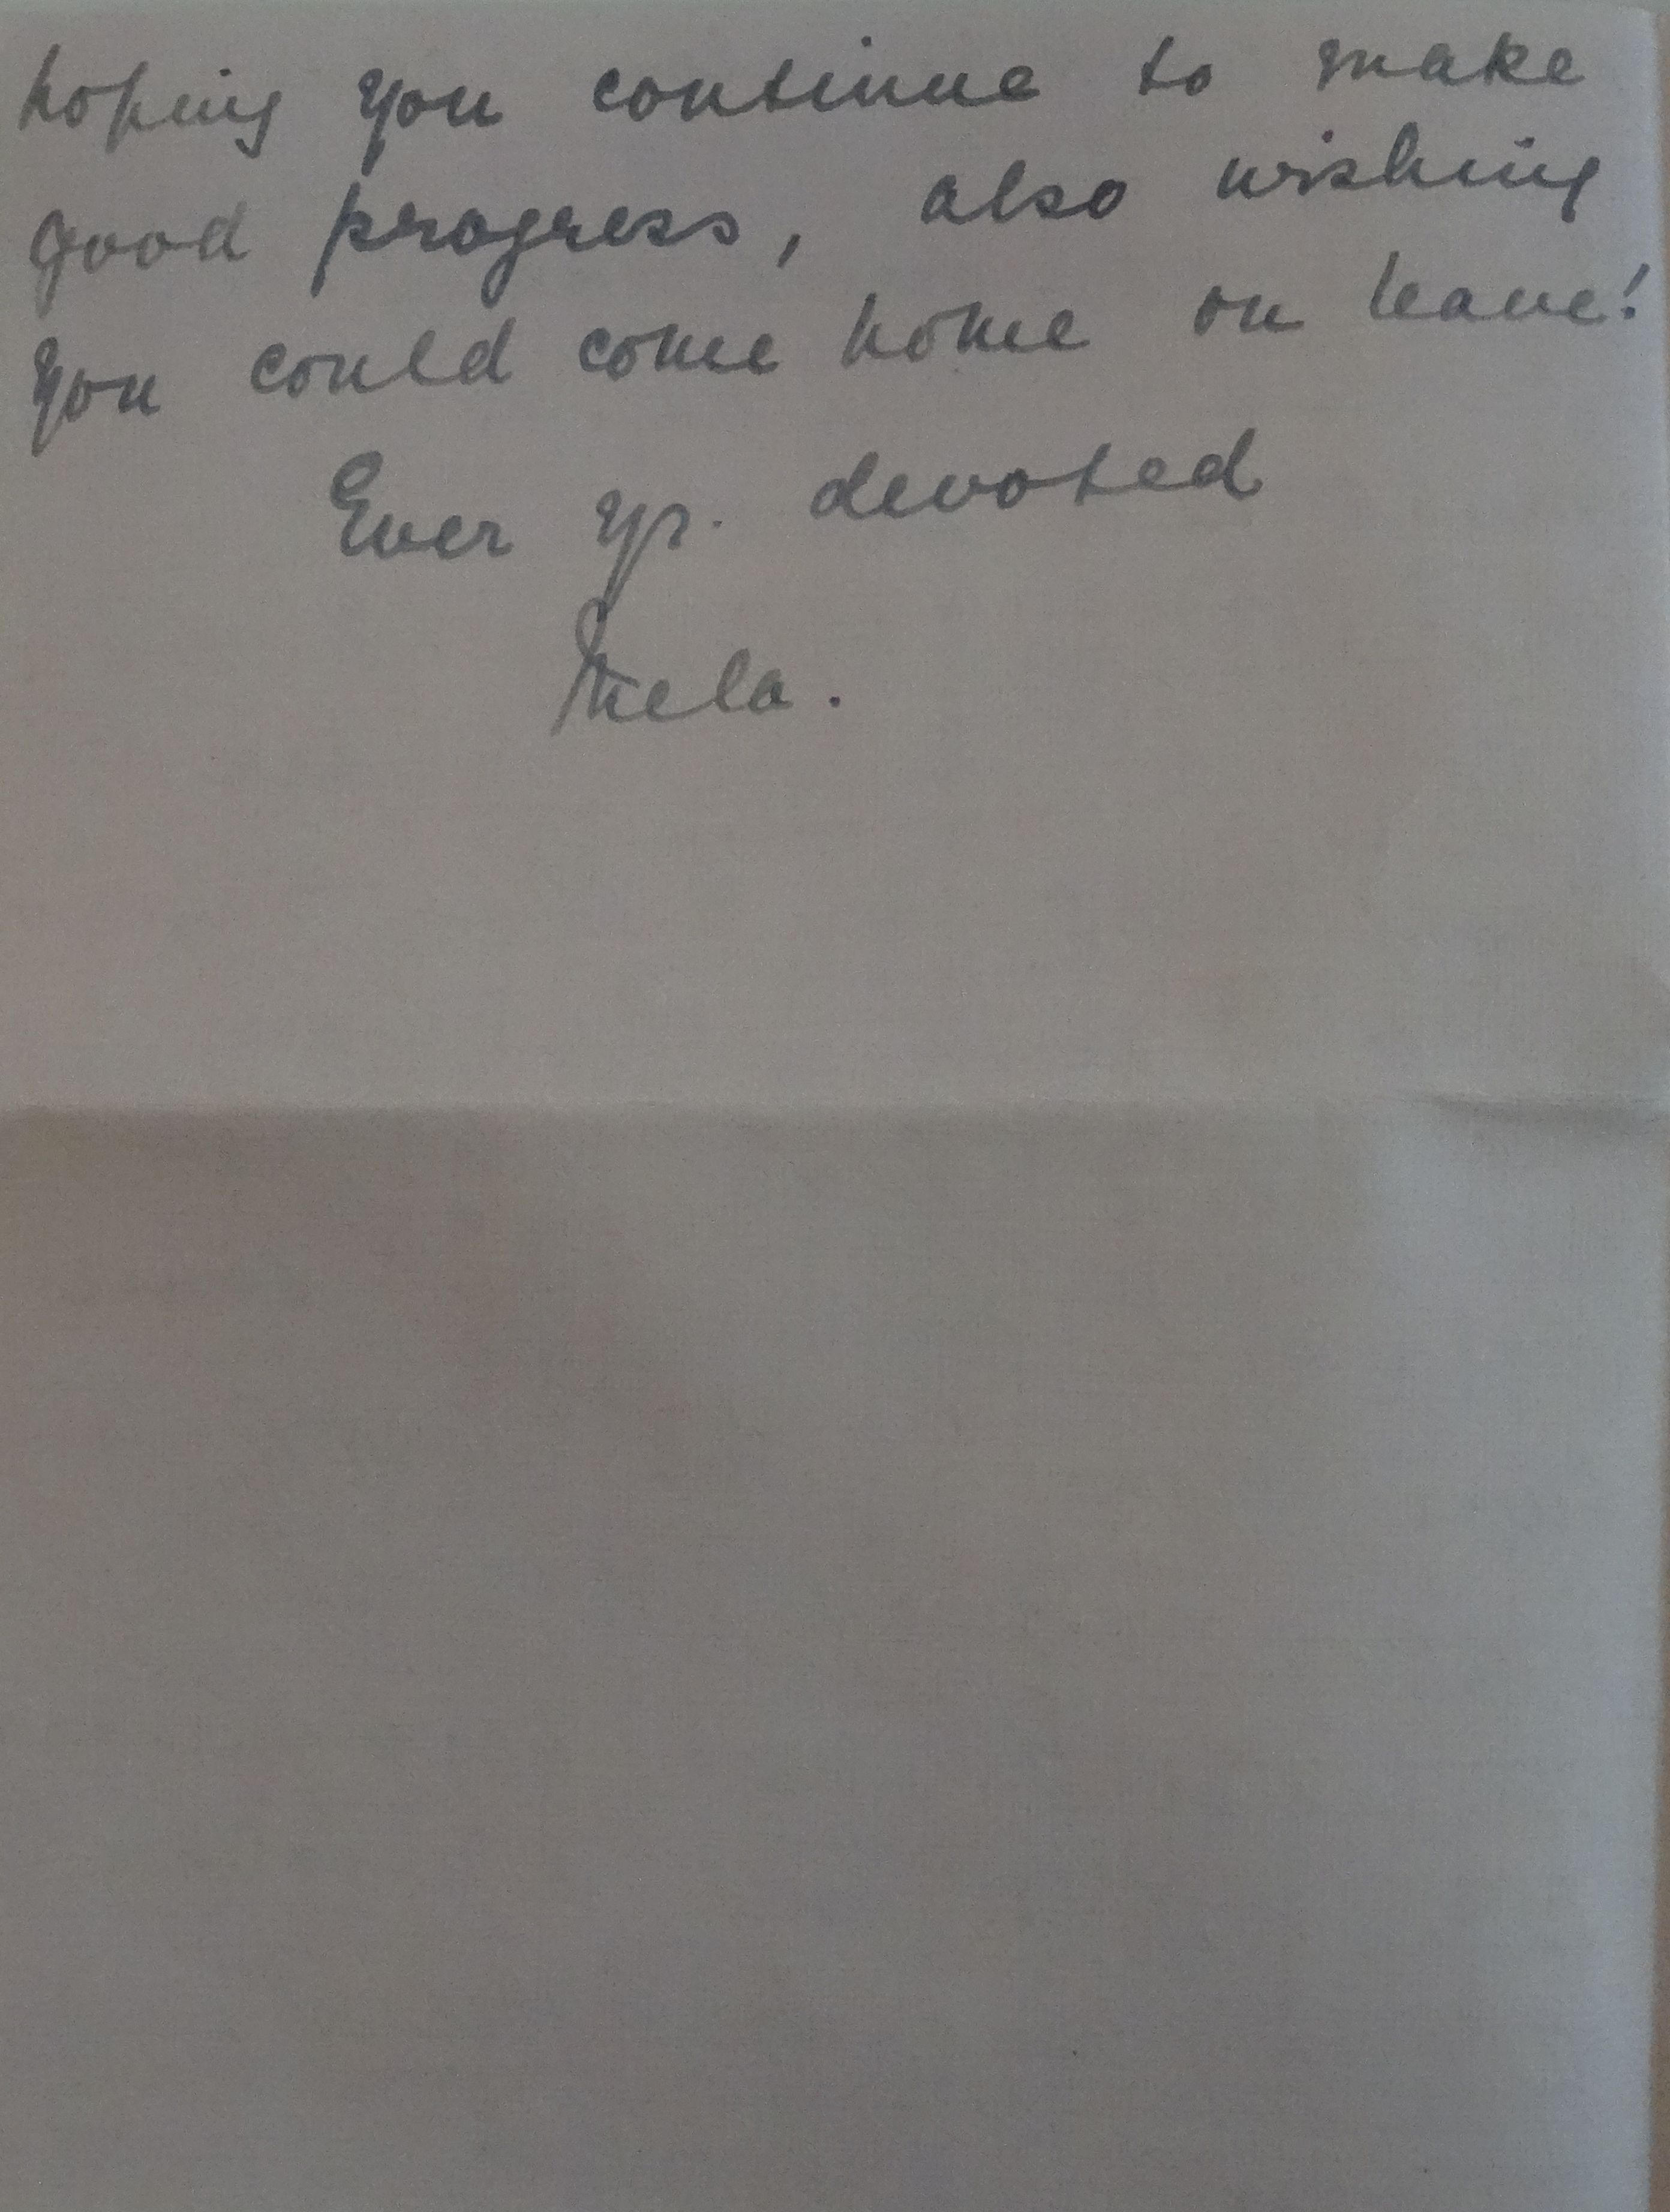 hoping you continue to make
good progress, also wishing
you could come home on leave!
Ever yr. devoted
Mela.